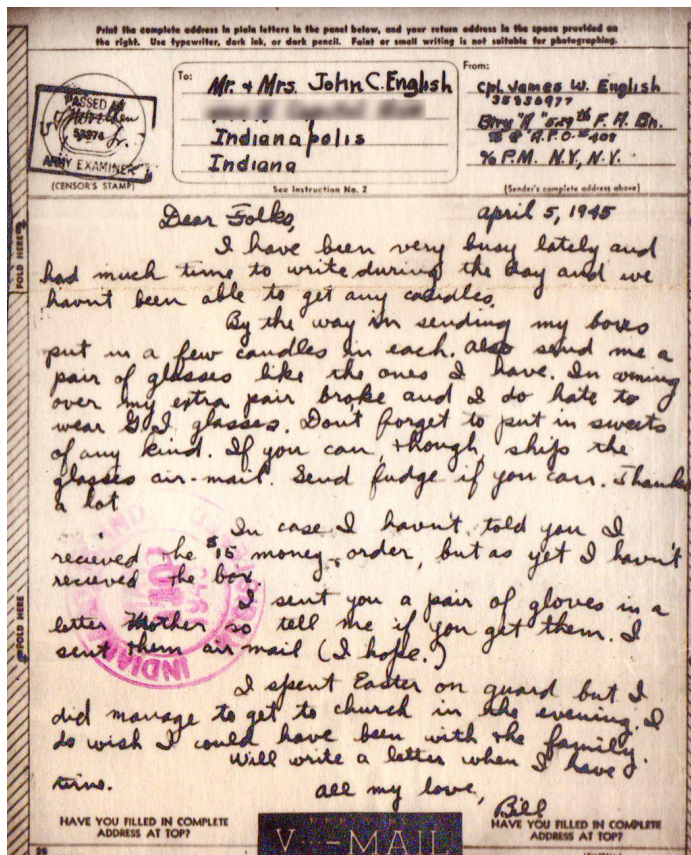 Print the complete address in plain letters in the panel below, and your return address in the space provided on
the right. Use typewriter, dark ink, or dark pencil. Faint or small writing is not suitable for photographing.
PASSED BY
ARMY EXAMINER
(CENSOR'S STAMP)
To:
Mr. & Mrs. John C. English
Indianapolis
Indiana
See Instruction No. 2
From:
Cpl. James W. English
Btry "A" 529th F. A. Bn.
A.P.O. 409
% P.M. N.Y., N.Y.
(Sender's complete address above)
FOLD HERE
April 5, 1945
Dear Folks,
I have been very busy lately and
had much time to write during the day and we
havn't been able to get any candles.
By the way in sending my boxes
put in a few candles in each. Also send me a
pair of glasses like the ones I have. In coming
over my extra pair broke and I do hate to
wear G.I. glasses. Don't forget to put in sweets
of any kind. If you can, though, ship the
glasses air-mail. Send fudge if you can. Thanks
a lot
In case I havn't told you I
recieved the $15 money order, but as yet I havn't
recieved the box.
I sent you a pair of gloves in a
letter Mother so tell me if you get them. I
sent them air mail (I hope.)
I spent Easter on guard but I
did manage to get to church in the evening. I
do wish I could have been with the family.
Will write a letter when I have
time.
All my love,
Bill
FOLD HERE
HAVE YOU FILLED IN COMPLETE
ADDRESS AT TOP?
V-MAIL
HAVE YOU FILLED IN COMPLETE
ADDRESS AT TOP?